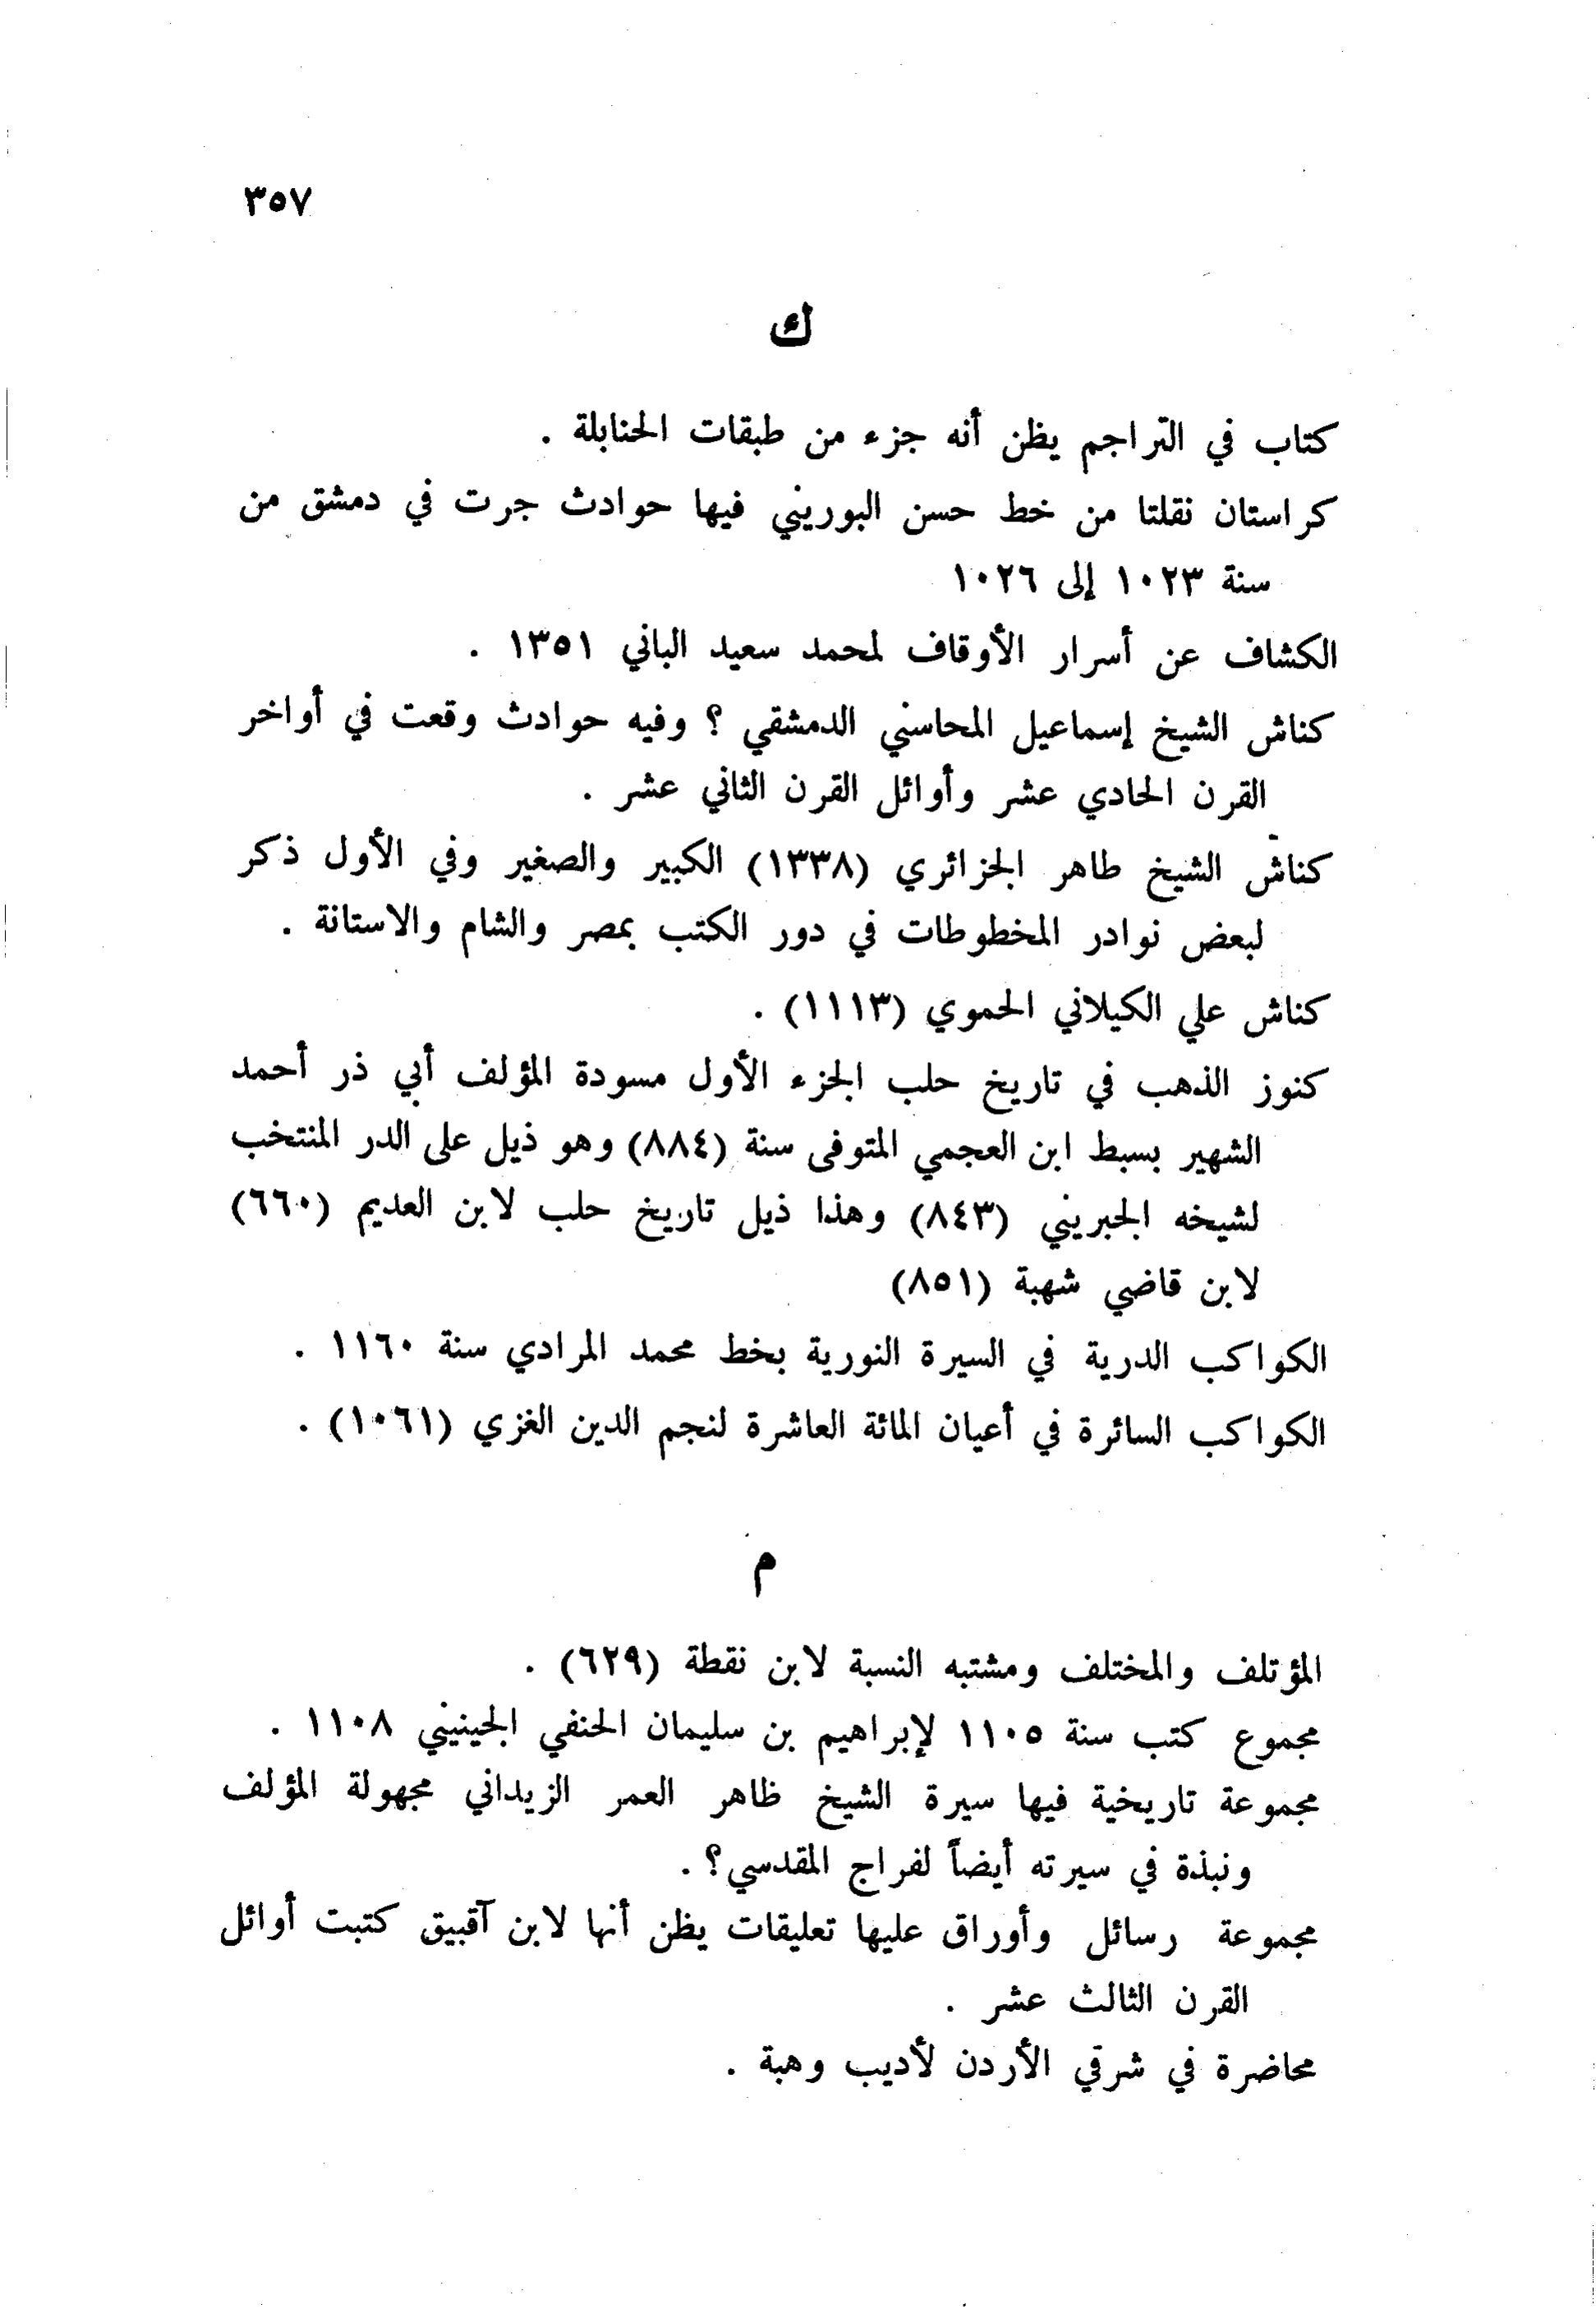 ٣٥٧
ك
كتاب في التراجم يظن أنه جزء من طبقات الحنابلة .
كراستان نقلتا من خط حسن البوريني فيها حوادث جرت في دمشق من
سنة ١٠٢٣ إلى ١٠٢٦
الكشاف عن أسرار الأوقاف لمحمد سعيد الباني ١٣٥١ .
كناش الشيخ إسماعيل المحاسني الدمشقي ؟ وفيه حوادث وقعت في أواخر
القرن الحادي عشر وأوائل القرن الثاني عشر .
كناش الشيخ طاهر الجزائري (١٣٣٨) الكبير والصغير وفي الأول ذكر
لبعض نوادر المخطوطات في دور الكتب بمصر والشام والاستانة .
كناش علي الكيلاني الحموي (١١١٣) .
كنوز الذهب في تاريخ حلب الجزء الأول مسودة المؤلف أبي ذر أحمد
الشهير بسبط ابن العجمي المتوفى سنة (٨٨٤) وهو ذيل على الدر المنتخب
لشيخه الجبريني (٨٤٣) وهذا ذيل تاريخ حلب لابن العديم (٦٦٠)
لابن قاضي شهبة (٨٥١)
الكواكب الدرية في السيرة النورية بخط محمد المرادي سنة ١١٦٠ .
الكواكب السائرة في أعيان المائة العاشرة لنجم الدين الغزي (١٠٦١) .
م
المؤتلف والمختلف ومشتبه النسبة لابن نقطة (٦٢٩) .
مجموع كتب سنة ١١٠٥ لإبراهيم بن سليمان الحنفي الجينيني ١١٠٨ .
مجموعة تاريخية فيها سيرة الشيخ ظاهر العمر الزيداني مجهولة المؤلف
ونبذة في سيرته أيضاً لفراج المقدسي؟ .
مجموعة رسائل وأوراق عليها تعليقات يظن أنها لابن آقبيق كتبت أوائل
القرن الثالث عشر .
محاضرة في شرقي الأردن لأديب وهبة .